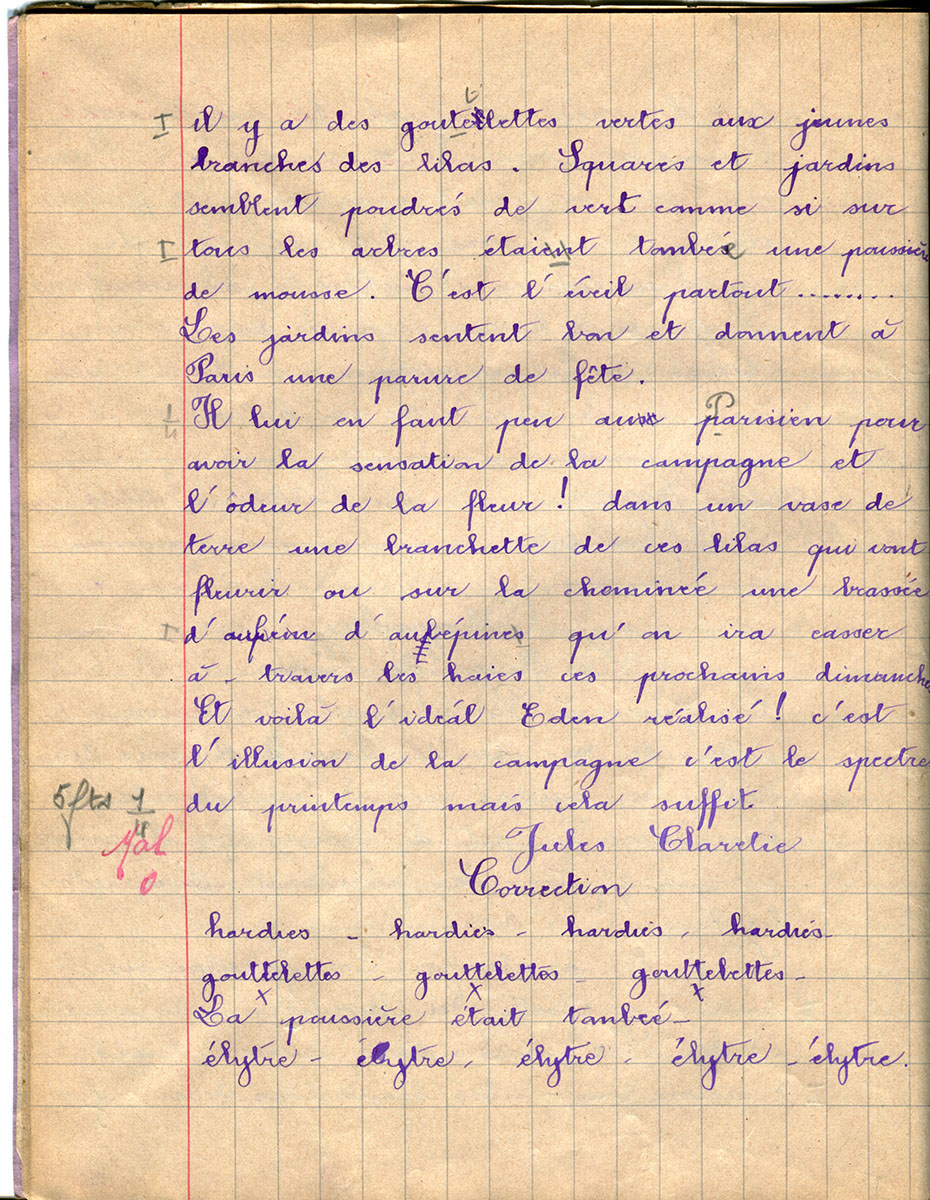 I il y a des goutellettes vertes aux jeunes
branches des lilas. Squares et jardins
semblent poudrés de vert comme si sur
I tous les arbres étaient tombée une poussière
de mousse. C'est l'éveil partout........
Les jardins sentent bon et donnent à
Paris une parure de fête.
1/4 Il lui en faut peu aux Parisien pour
avoir la sensation de la campagne et
l'ôdeur de la fleur! dans un vase de
terre une branchette de ces lilas qui vont
fleurir ou sur la cheminée une brassée
I d'aubépines qu'on ira casser
à - travers les haies ces prochains dimanche
Et voilà l'idéal Eden réalisé! c'est
l'illusion de la campagne c'est le spectre
5 ftes 1/4 du printemps mais cela suffit
Mal
0
Jules Claretie
Correction
hardies - hardies - hardies - hardies -
gouttelettes - gouttelettes - gouttelettes -
x x x
La poussière était tombée -
élytre - élytre - élytre - élytre - élytre.